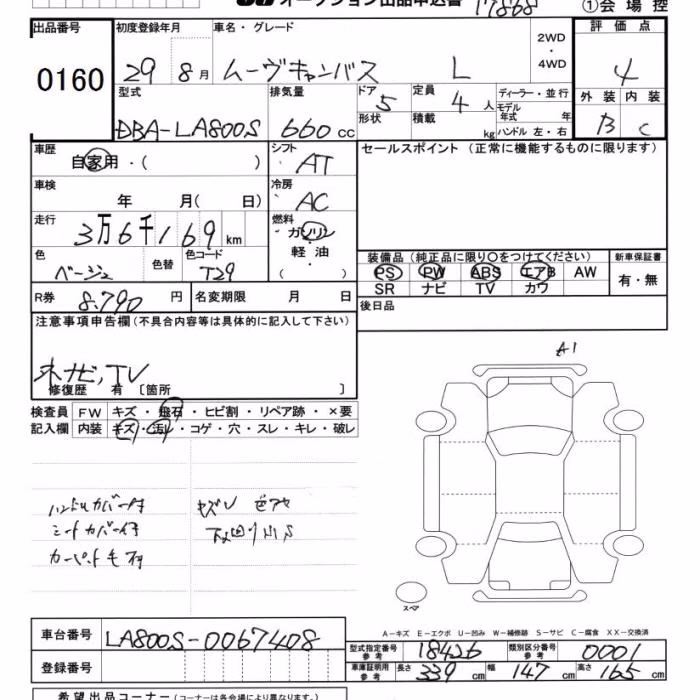 オークション出品申込書 17868 ①会場控
出品番号 0160
初度登録年月 29 8月
車名・グレード ムーヴキャンバス L 2WD・4WD
評価点 4
外装 B 内装 C
型式 DBA-LA800S
排気量 660 cc
ドア 5 定員 4人
形状 積載 kg
ディーラー・並行
モデル年式 年
ハンドル 左・右
車歴 自家用・( )
シフト AT
車検 年 月( 日)
冷房 AC
走行 3万6千169 km
燃料 ガソリン・軽油・( )
色 ベージュ 色替 色コード T29
R券 8,790 円 名変期限 月 日
セールスポイント(正常に機能するものに限ります)
装備品(純正品に限り○をつけてください) 新車保証書
PS PW ABS エアB AW 有・無
SR ナビ TV カワ
後日品
注意事項申告欄(不具合内容等は具体的に記入して下さい)
ナビ,TV
修復歴 有〔箇所 〕
検査員記入欄 FW キズ・飛石・ヒビ割・リペア跡・×要
内装 キズ・汚れ・コゲ・穴・スレ・キレ・破レ
ハンドルカバー付
シートカバー付
カーペット毛
キズU
下廻りサビS
A1
スペア
A－キズ E－エクボ U－凹み W－補修跡 S－サビ C－腐食 XX－交換済
車台番号 LA800S-0067408
登録番号
型式指定番号 参考 18426 類別区分番号 参考 0001
車庫証明用 参考 長さ 339 cm 幅 147 cm 高さ 165 cm
希望出品コーナー(コーナーは各会場により異なります。)